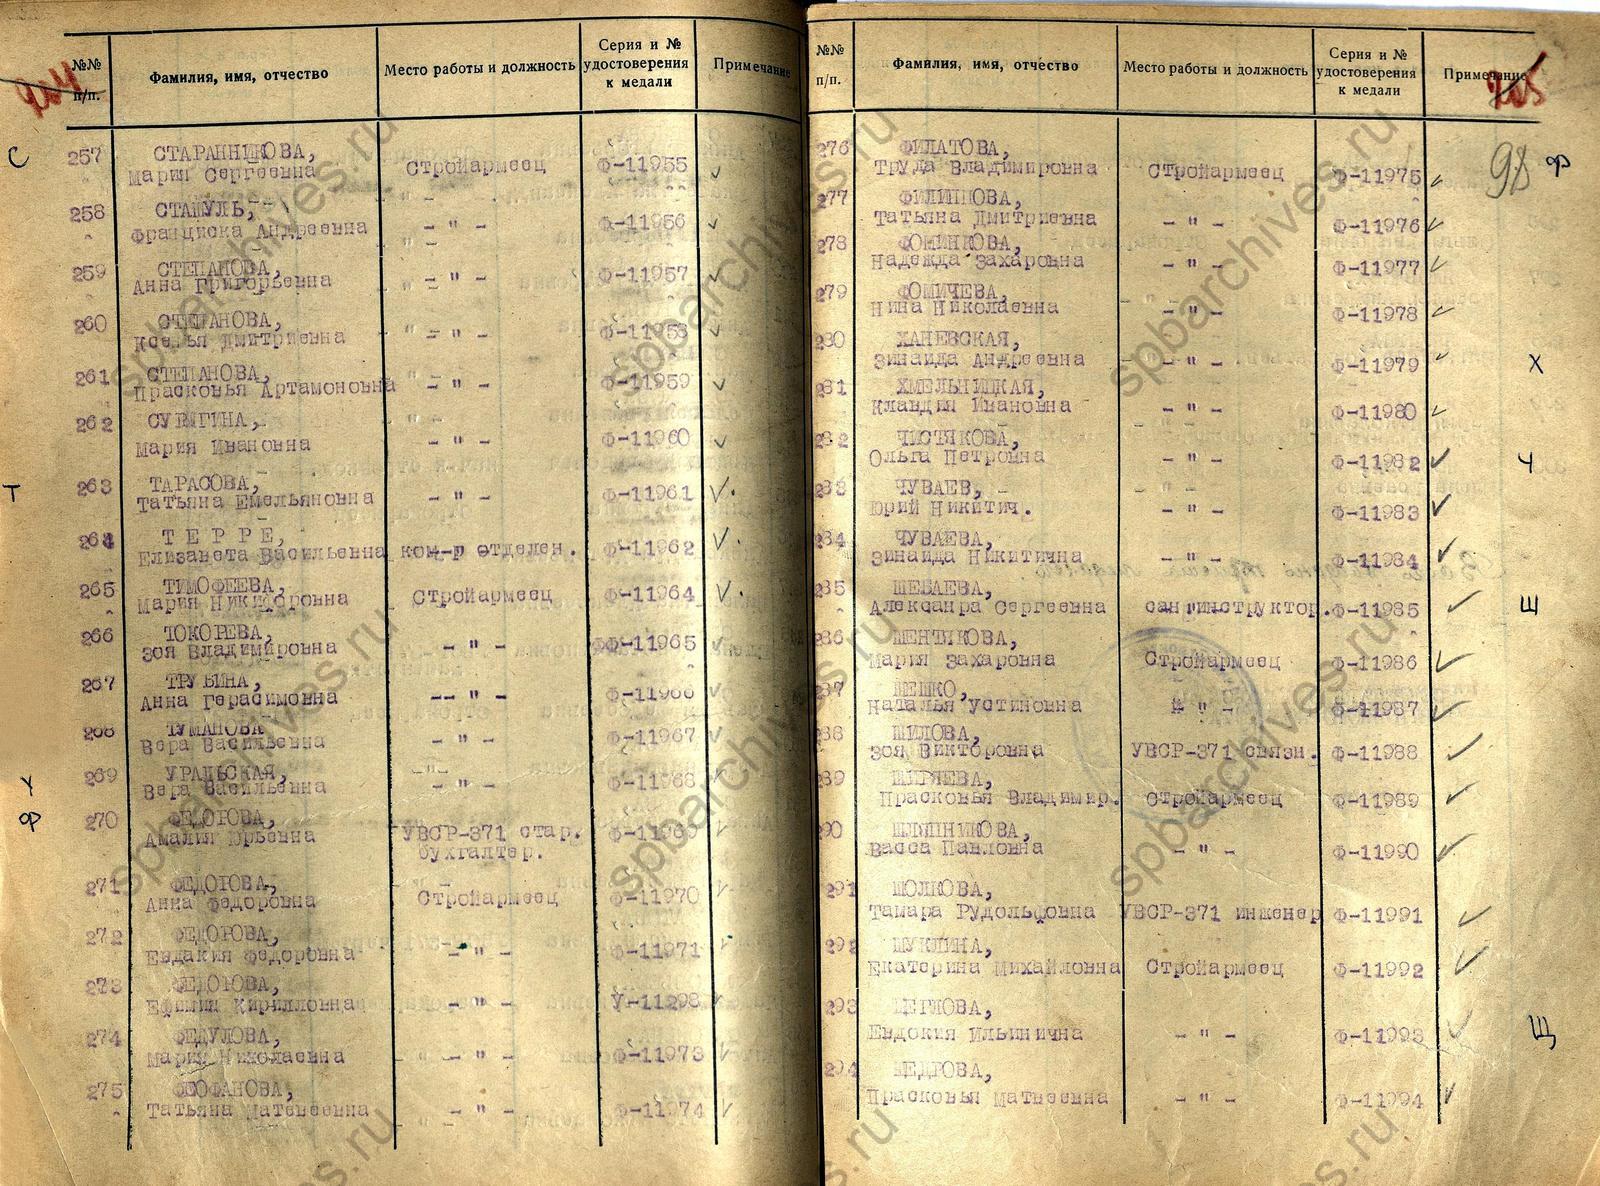 №№ п/п.
Фамилия, имя, отчество
Место работы и должность
Серия и № удостоверения к медали
Примечание
С
257 СТАРАННИКОВА,
Мария Сергеевна Стройармеец Ф-11955
258 СТАШУЛЬ,
Франциска Андреевна - " - Ф-11956
259 СТЕПАНОВА,
Анна Григорьевна - " - Ф-11957
260 СТЕПАНОВА,
Ксенья Дмитриевна - " - Ф-11958
261 СТЕПАНОВА,
Прасковья Артамоновна - " - Ф-11959
262 СУРЯГИНА,
Мария Ивановна - " - Ф-11960
Т
263 ТАРАСОВА,
Татьяна Емельяновна - " - Ф-11961
264 ТЕРРЕ,
Елизавета Васильевна ком-р отделен. Ф-11962
265 ТИМОФЕЕВА,
Мария Никифоровна Стройармеец Ф-11964
266 ТОКОРЕВА,
Зоя Владимировна - " - Ф-11965
267 ТРУБИНА,
Анна Герасимовна -- " - Ф-11966
268 ТУМАНОВА
Вера Васильевна - " - Ф-11967
У
269 УРАЛЬСКАЯ,
Вера Васильевна - " - Ф-11968
Ф
270 ФЕДОТОВА,
Амалия Юрьевна УВСР-371 стар. Ф-11969
бухгалтер.
271 ФЕДОТОВА,
Анна Федоровна Стройармеец Ф-11970
272 ФЕДОРОВА,
Евдакия Федоровна - " - Ф-11971
273 ФЕДОТОВА,
Ефимия Кирилловна - " - У-11298
274 ФЕДУЛОВА,
Мария Николаевна - " - Ф-11973
275 ФЕОФАНОВА,
Татьяна Матвеевна - " - Ф-11974
№№ п/п.
Фамилия, имя, отчество
Место работы и должность
Серия и № удостоверения к медали
Примечание
205
98
Ф
276 ФИЛАТОВА,
Труда Владимировна Стройармеец Ф-11975
277 ФИЛИППОВА,
Татьяна Дмитриевна - " - Ф-11976
278 ФОМЕНКОВА,
Надежда Захаровна - " - Ф-11977
279 ФОМИЧЕВА,
Нина Николаевна - " - Ф-11978
Х
280 ХАНЕВСКАЯ,
Зинаида Андреевна - " - Ф-11979
281 ХМЕЛЬНИЦКАЯ,
Клавдия Ивановна - " - Ф-11980
Ч
282 ЧИСТЯКОВА,
Ольга Петровна - " - Ф-11982
283 ЧУВАЕВ,
Юрий Никитич. - " - Ф-11983
284 ЧУВАЕВА,
Зинаида Никитична - " - Ф-11984
Ш
285 ШЕБАЕВА,
Александра Сергеевна санинструктор. Ф-11985
286 ШЕНТЯКОВА,
Мария Захаровна Стройармеец Ф-11986
287 ШЕШКО,
Наталья Устиновна - " - Ф-11987
288 ШИЛОВА,
Зоя Викторовна УВСР-371 связн. Ф-11988
289 ШИРЯЕВА,
Прасковья Владимир. Стройармеец Ф-11989
290 ШЛЯПНИКОВА,
Васса Павловна - " - Ф-11990
291 ШОЛКОВА,
Тамара Рудольфовна УВСР-371 инженер Ф-11991
292 ШУКЛИНА,
Екатерина Михайловна Стройармеец Ф-11992
Щ
293 ЩЕГЛОВА,
Евдокия Ильинична - " - Ф-11993
294 ЩЕДРОВА,
Прасковья Матвеевна - " - Ф-11994
spbarchives.ru